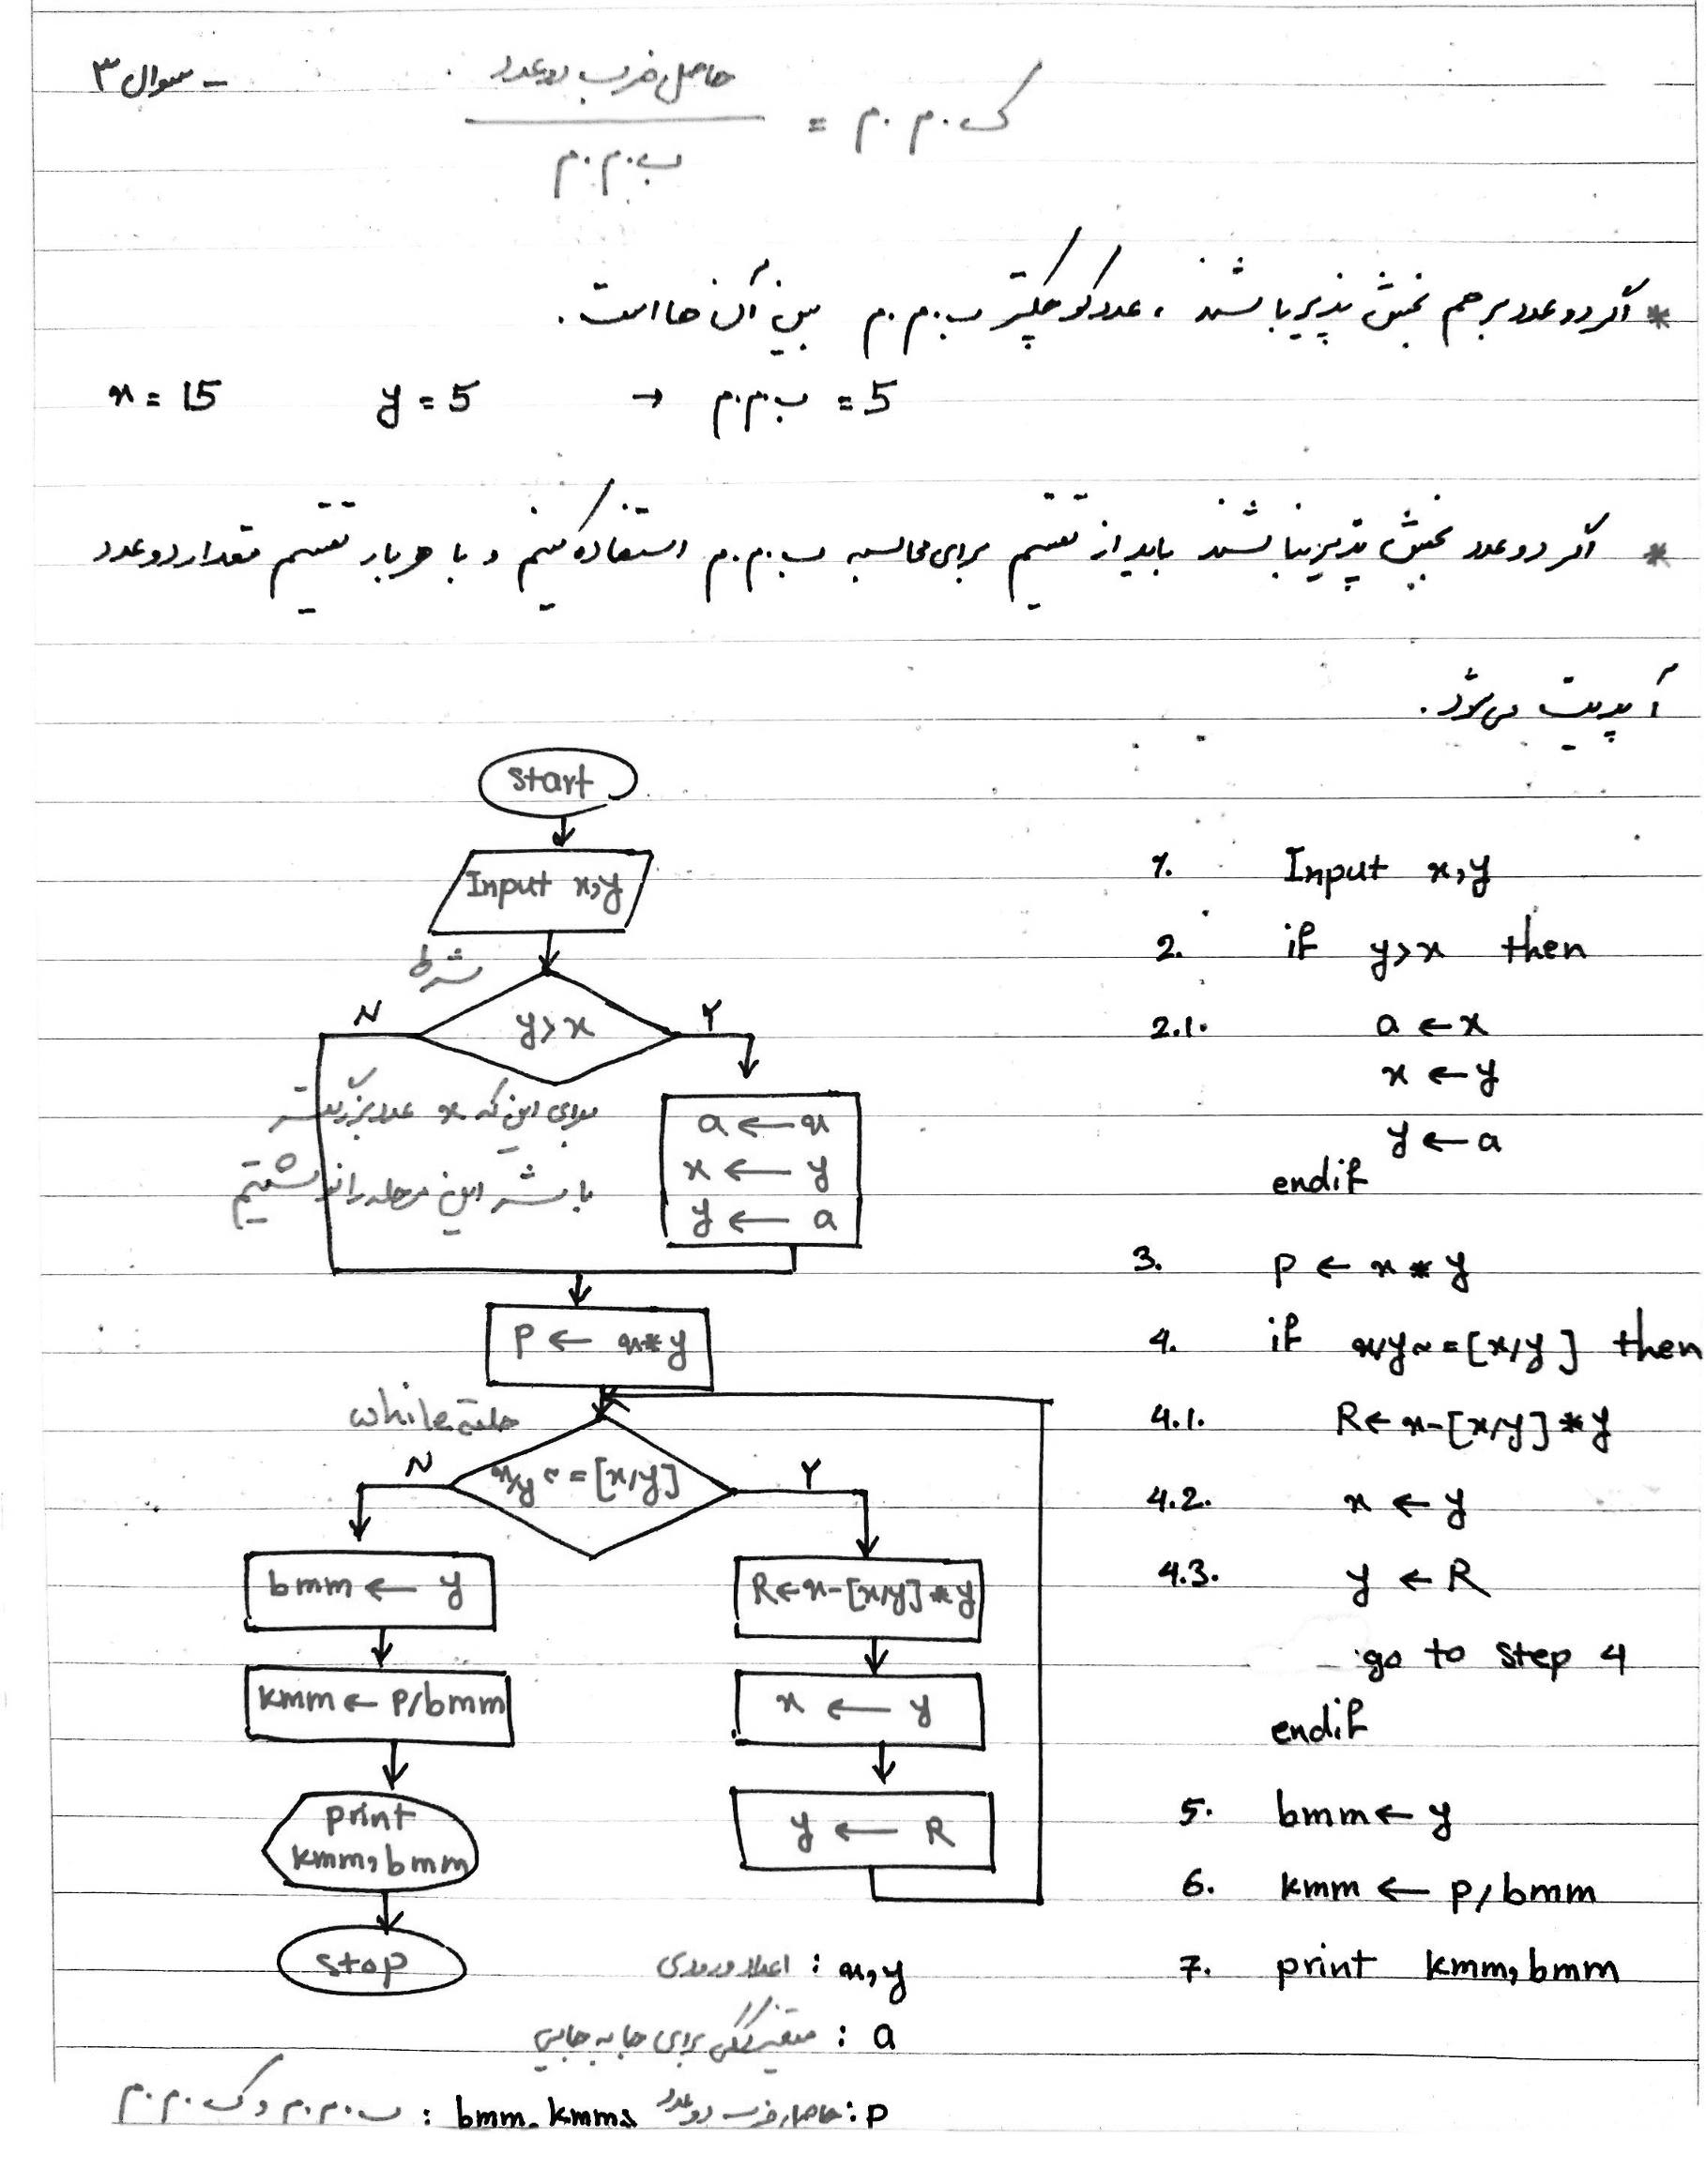 - سوال ۳
ک.م.م = حاصل ضرب دو عدد / ب.م.م
* اگر دو عدد بر هم بخش پذیر باشند ، عدد کوچکتر ب.م.م بین آن ها است.
x = 15 y = 5 → ب.م.م = 5
* اگر دو عدد بخش پذیر نباشند باید از تقسیم برای محاسبه ب.م.م استفاده کنیم و با هر بار تقسیم مقدار دو عدد
آپدیت می شود.
start
Input x,y
شرط
y>x
N
Y
برای این که x عدد بزرگتر
باشد این مرحله را نوشتیم
a ← x
x ← y
y ← a
P ← x*y
حلقه while
x/y ~= [x/y]
N
Y
bmm ← y
kmm ← P/bmm
print
kmm, bmm
stop
R ← x-[x/y]*y
x ← y
y ← R
1. Input x,y
2. if y>x then
2.1. a ← x
x ← y
y ← a
endif
3. P ← x * y
4. if x/y ~= [x/y] then
4.1. R ← x-[x/y]*y
4.2. x ← y
4.3. y ← R
go to step 4
endif
5. bmm ← y
6. kmm ← P/bmm
7. print kmm, bmm
x,y : اعداد ورودی
a : متغیر کمکی برای جا به جایی
P : حاصل ضرب دو عدد
bmm, kmm : ب.م.م و ک.م.م